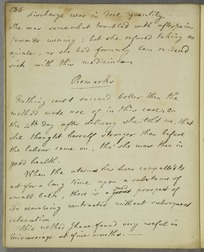 136
discharge was in due quantity.
She was somewhat troubled with afterpains
towards evening; but she refused taking an
opiate, as she had formerly been rendered
sick with this medicine.
Remarks
Nothing could succeed better than the
method made use of in this case; on
the 4th day after delivery she told me, that
she thought herself stronger than before
the labour came on, tho' she was then in
good health.
When the uterus has been compelled to
act for a long time, upon a substance of
small bulk, there is a good prospect of
its remaining contracted without subsequent
relaxation.
This method I have found very useful in
miscarriage at five months.